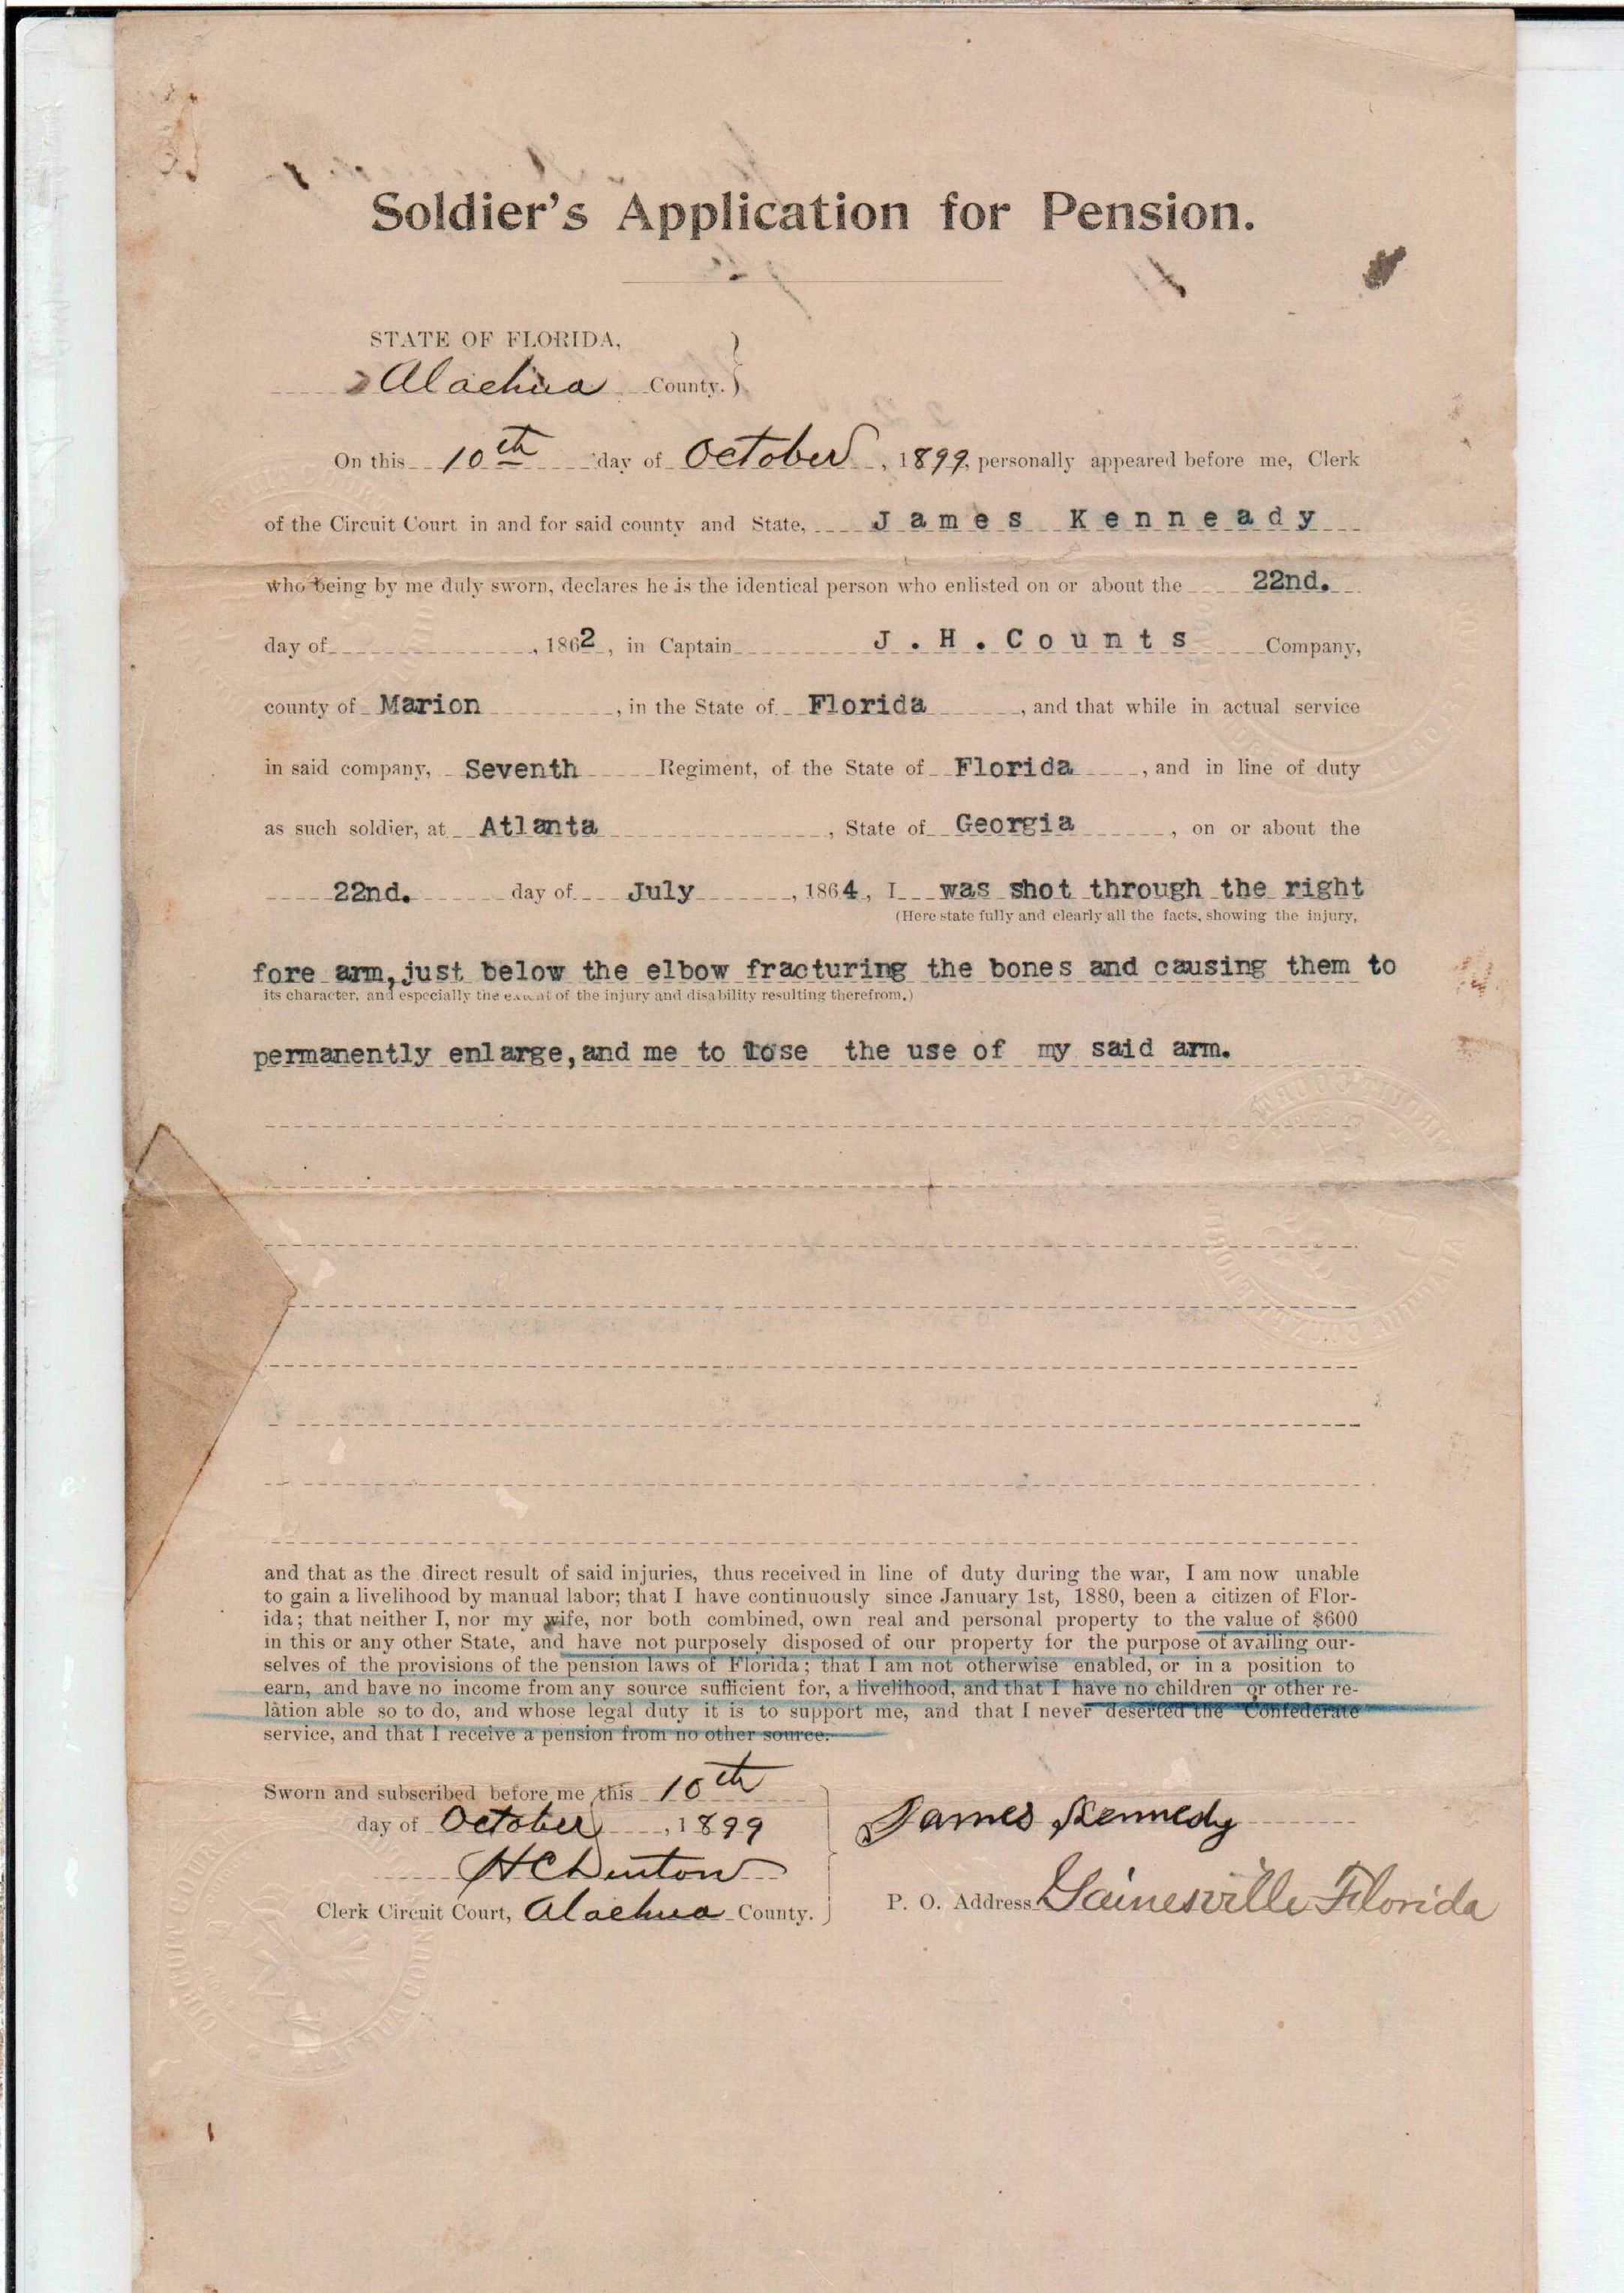 Soldier's Application for Pension.
STATE OF FLORIDA,
Alachua County.
On this 10th day of October, 1899, personally appeared before me, Clerk
of the Circuit Court in and for said county and State, James Kenneady
who being by me duly sworn, declares he is the identical person who enlisted on or about the 22nd.
day of , 1862, in Captain J.H.Counts Company,
county of Marion , in the State of Florida , and that while in actual service
in said company, Seventh Regiment, of the State of Florida , and in line of duty
as such soldier, at Atlanta , State of Georgia , on or about the
22nd. day of July , 1864, I was shot through the right
(Here state fully and clearly all the facts, showing the injury,
fore arm, just below the elbow fracturing the bones and causing them to
its character, and especially the extent of the injury and disability resulting therefrom.)
permanently enlarge, and me to lose the use of my said arm.
and that as the direct result of said injuries, thus received in line of duty during the war, I am now unable
to gain a livelihood by manual labor; that I have continuously since January 1st, 1880, been a citizen of Flor-
ida; that neither I, nor my wife, nor both combined, own real and personal property to the value of $600
in this or any other State, and have not purposely disposed of our property for the purpose of availing our-
selves of the provisions of the pension laws of Florida; that I am not otherwise enabled, or in a position to
earn, and have no income from any source sufficient for, a livelihood, and that I have no children or other re-
lation able so to do, and whose legal duty it is to support me, and that I never deserted the Confederate
service, and that I receive a pension from no other source.
Sworn and subscribed before me this 10th
day of October, 1899
H C Denton
Clerk Circuit Court, Alachua County.
James Kennedy
P. O. Address Gainesville Florida